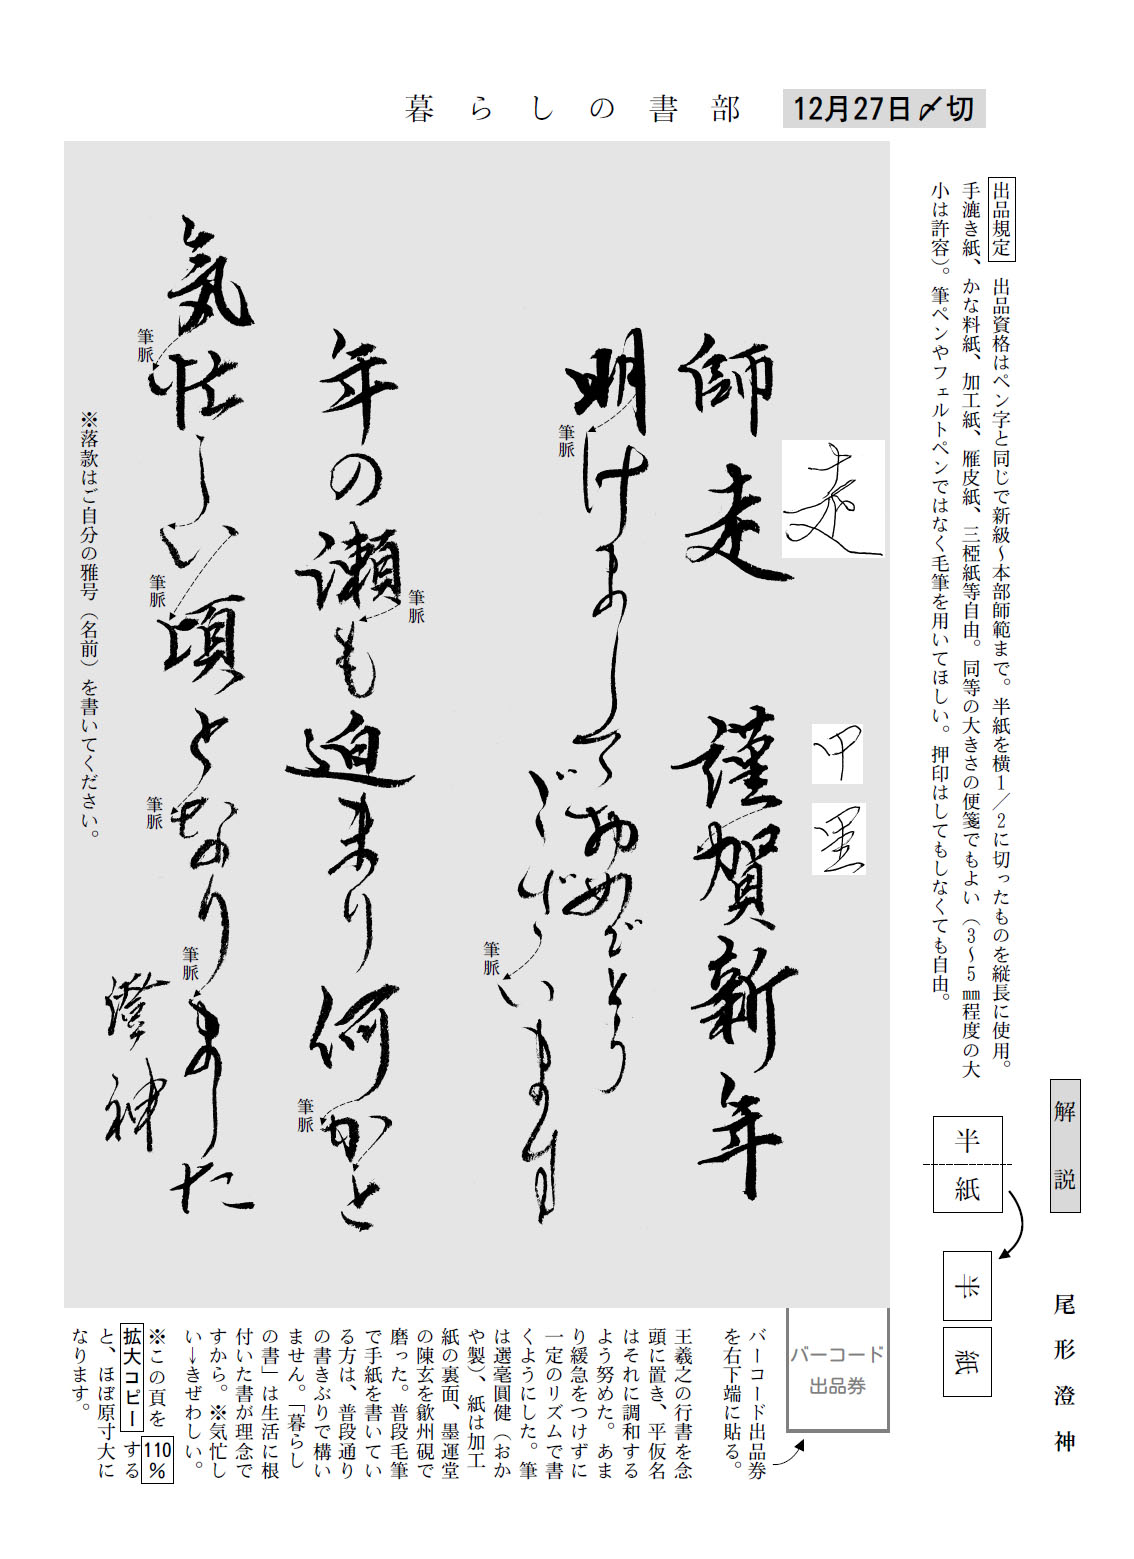 暮らしの書部
12月27日〆切
出品規定 出品資格はペン字と同じで新級～本部師範まで。半紙を横1／2に切ったものを縦長に使用。
手漉き紙、かな料紙、加工紙、雁皮紙、三椏紙等自由。同等の大きさの便箋でもよい（3～5㎜程度の大
小は許容）。筆ペンやフェルトペンではなく毛筆を用いてほしい。押印はしてもしなくても自由。
解説
尾形澄神
半
紙
半
紙
走
甲
里
師走 謹賀新年
明けましておめでとう
ございます
年の瀬も迫まり何かと
気忙しい頃となりました
澄神
筆脈
筆脈
筆脈
筆脈
筆脈
筆脈
筆脈
筆脈
※落款はご自分の雅号（名前）を書いてください。
バーコード
出品券
バーコード出品券
を右下端に貼る。
王羲之の行書を念
頭に置き、平仮名
はそれに調和する
よう努めた。あま
り緩急をつけずに
一定のリズムで書
くようにした。筆
は選毫圓健（おか
や製）、紙は加工
紙の裏面、墨運堂
の陳玄を歙州硯で
磨った。普段毛筆
で手紙を書いてい
る方は、普段通り
の書きぶりで構い
ません。「暮らし
の書」は生活に根
付いた書が理念で
すから。※気忙し
い→きぜわしい。
※この頁を110％
拡大コピーする
と、ほぼ原寸大に
なります。